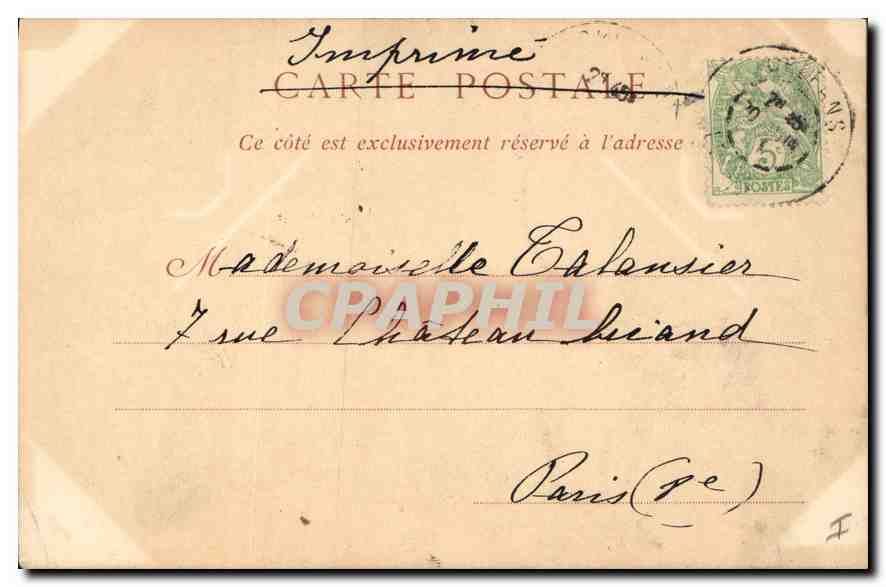 Imprimé
CARTE POSTALE
Ce côté est exclusivement réservé à l'adresse
5
POSTES
Mademoiselle Talansier
CPAPHIL
7 rue Château briand
Paris (8e)